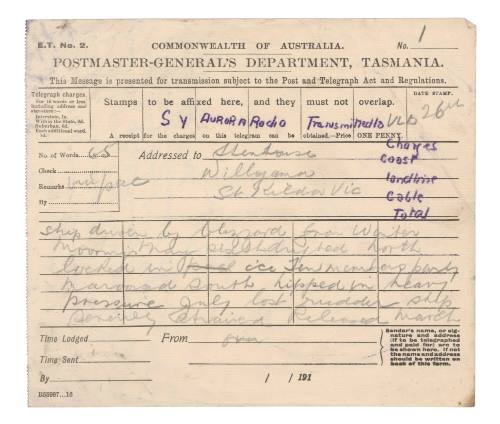 E.T. No. 2.
COMMONWEALTH OF AUSTRALIA.
No. 1
POSTMASTER-GENERAL'S DEPARTMENT, TASMANIA.
This Message is presented for transmission subject to the Post and Telegraph Act and Regulations.
Telegraph charges.
For 16 words or less including address and signature:—
Interstate, 1s.
Within the State, 9d.
Suburban, 6d.
Each additional word, 1d.
Stamps to be affixed here, and they must not overlap.
DATE STAMP.
S Y AURORA Radio Transmitted 26th
A receipt for the charges on this telegram can be obtained.—Price ONE PENNY.
No. of Words 65
Check
Remarks
By
Addressed to Stenhouse
Willyama
St Kilda Vic
Charges
Coast
landline
Cable
Total
ship driven by blizzard from Winter
Moorings May sixth drifted North
locked in ice Ten members party
marooned South nipped in heavy
pressure July lost rudder ship
severely strained Released March
Time Lodged
From
Time Sent
By
/ / 191
Sender's name, or signature and address (if to be telegraphed and paid for) are to be shown here. If not the name and address should be written on back of this form.